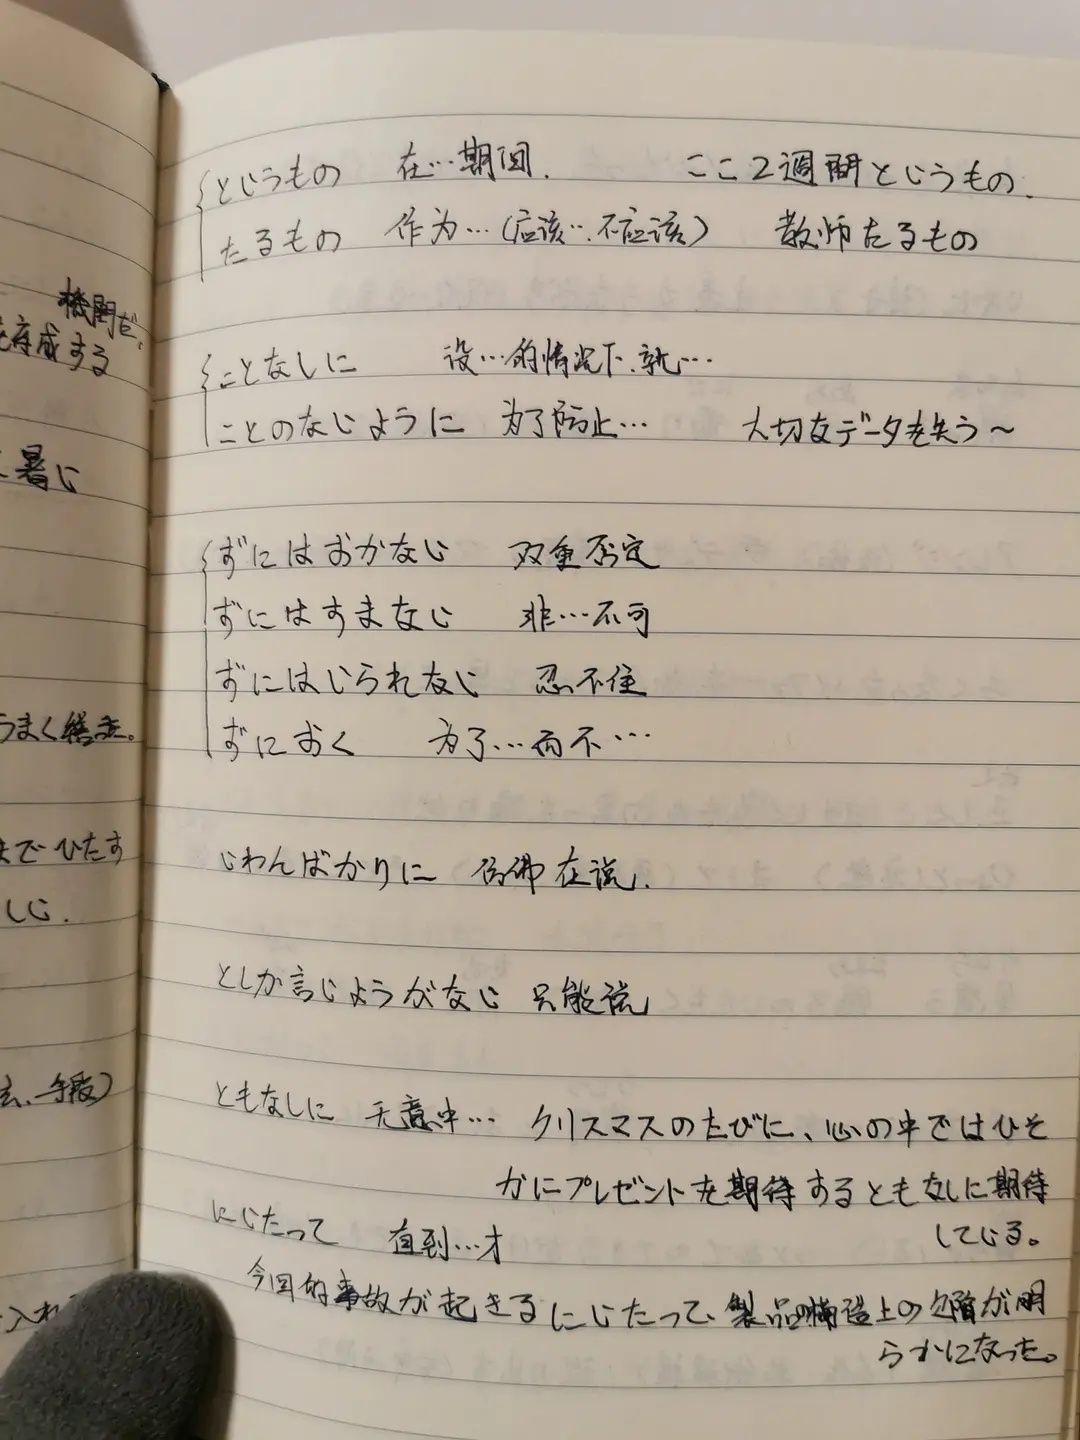 機関だ。
を育成する
暑い
うまく繕き。
までひたす
しい.
法、手段)
入れ
というもの 在…期间. ここ2週間というもの.
たるもの 作为…(应该…不应该) 教师たるもの
ことなしに 没…的情况下、就…
ことのないように 为了防止… 大切なデータを失う～
ずにはおかない 双重否定
ずにはすまない 非…不可
ずにはいられない 忍不住
ずにおく 为了…而不…
いわんばかりに 仿佛在说.
としか言いようがない 只能说
ともなしに 无意中… クリスマスのたびに、心の中ではひそ
かにプレゼントを期待するともなしに期待
している。
にいたって 直到…才
今回的事故が起きるにいたって、製品の構造上の欠陥が明
らかになった。